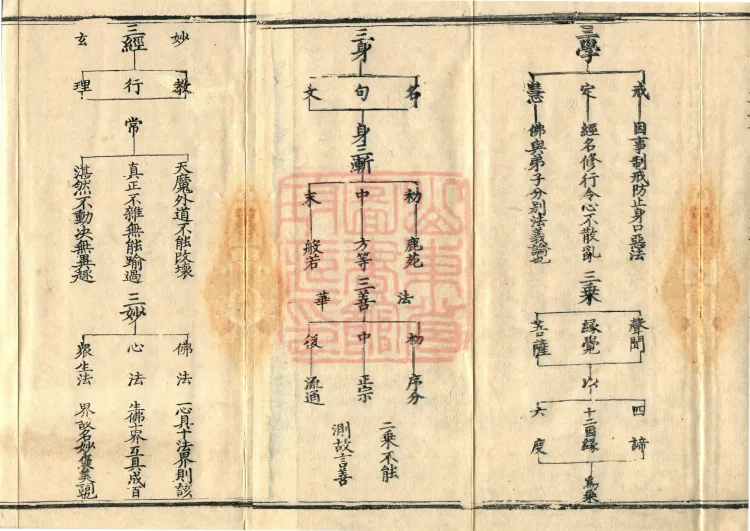 三學
戒 因事制戒防止身口惡法
定 經名修行令心不散亂
慧 佛與弟子分別法義論也
三乘
聲聞
緣覺
菩薩
以
四諦
十二因緣
六度
為乘
三身
名
句
文
身
三漸
初 鹿苑
中 方等
末 般若
法華三善
初 序分
中 正宗
後 流通
二乘不能
測故言善
妙
三經
玄
教
行
理
常
天魔外道不能改壞
真正不雜無能踰過
湛然不動決無異趣
三妙
佛法 一心具十法界則該
心法 生佛十界互具成百
眾生法 界故名妙褒美